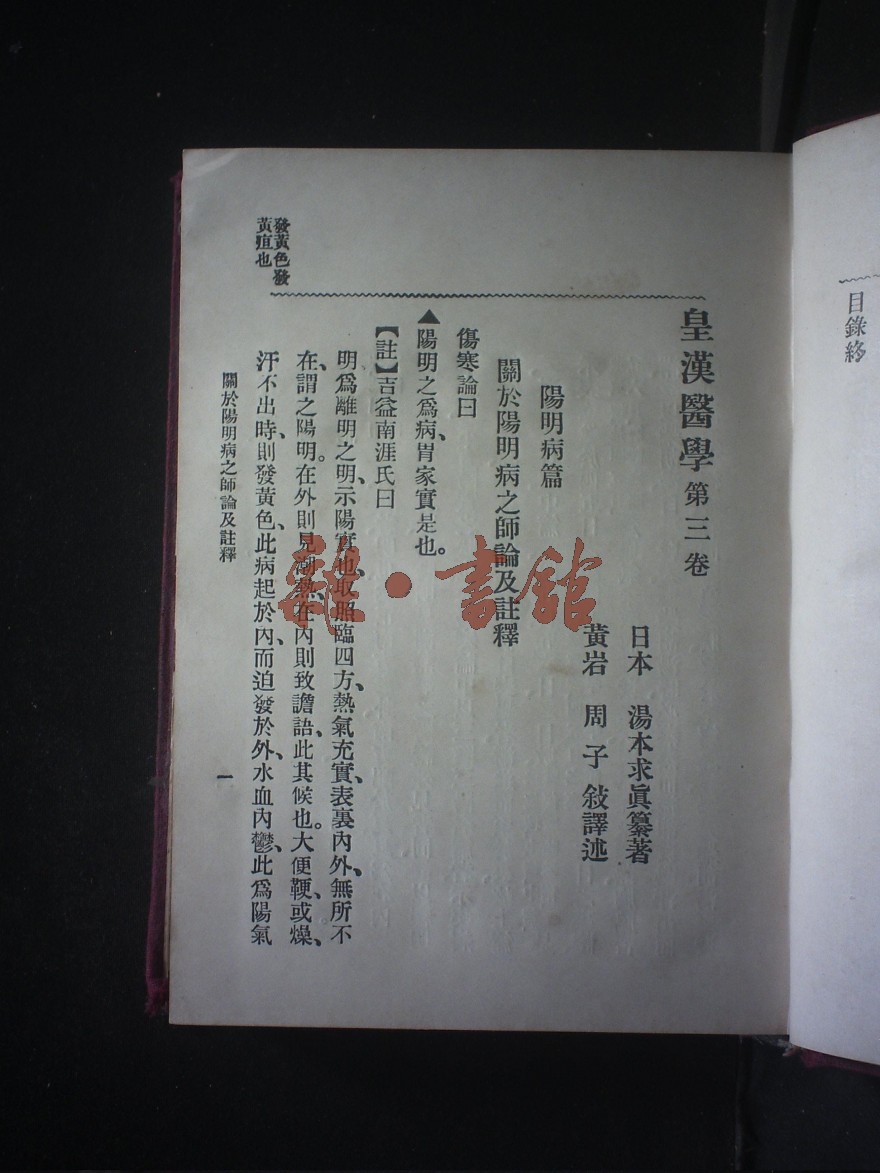 目錄終
皇漢醫學第三卷
日本　湯本求眞纂著
黃岩　周子敍譯述
陽明病篇
關於陽明病之師論及註釋
傷寒論曰
▲陽明之爲病、胃家實是也。
【註】吉益南涯氏曰
明爲離明之明、示陽實也、取照臨四方、熱氣充實、表裏內外、無所不
在、謂之陽明。在外則見潮熱、在內則致譫語、此其候也。大便鞕、或燥、
汗不出時、則發黃色、此病起於內、而迫發於外、水血內鬱、此爲陽氣
發黃色發
黃疸也
關於陽明病之師論及註釋
一
雜·書館